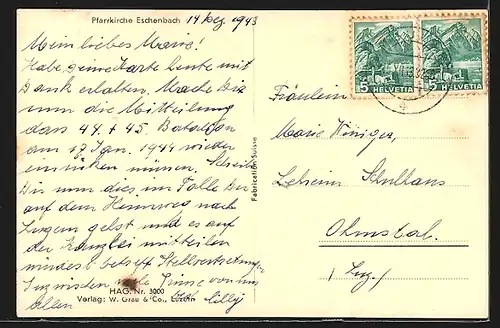 Pfarrkirche Eschenbach 14 Dez. 1943
Mein liebes Marie!
Habe Deine Karte heute mit
Dank erhalten. Mache Dir
nur die Mitteilung
dass 44 + 45 Bataljon
am 17 Jan. 1944 wieder
einrücken müssen. Schreibe
Dir nur dies im Falle Du
auf dem Heimweg nach
Luzern gehst und es auf
der Kanzlei mitteilen
mindest betreff Stellvertretung
Inzwischen viele Grüsse von uns
allen Lilly
HAG. Nr. 3000
Verlag: W. Grau & Co., Luzern
Fabrication Suisse
5 HELVETIA
5 HELVETIA
Fräulein
Marie Winiger,
Lehrerin Schulhaus
Ohmstal.
(Luz.)